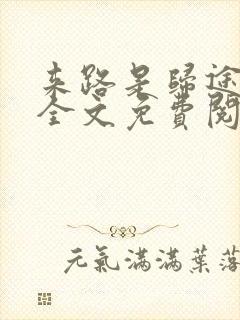 来路是歸途
全文免費閱
元氣滿滿葉落